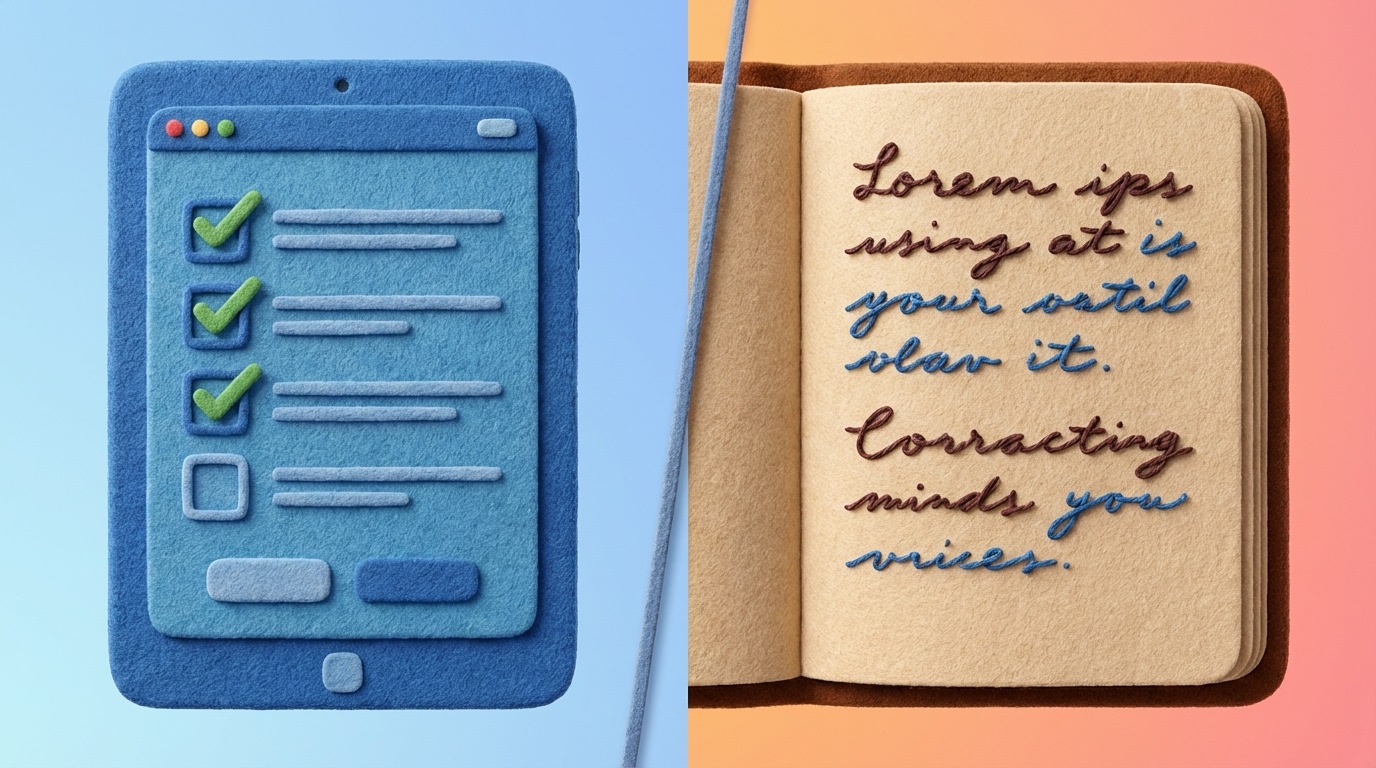 Lorem ips
using at is
your ostil
vlav it.
Corracting
minds you
vrices.